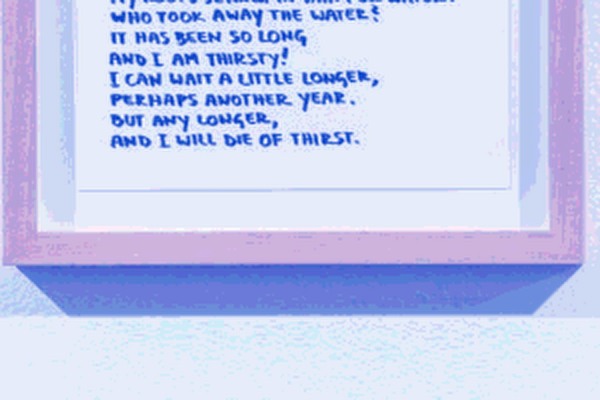 WHO TOOK AWAY THE WATER?
IT HAS BEEN SO LONG
AND I AM THIRSTY!
I CAN WAIT A LITTLE LONGER,
PERHAPS ANOTHER YEAR.
BUT ANY LONGER,
AND I WILL DIE OF THIRST.